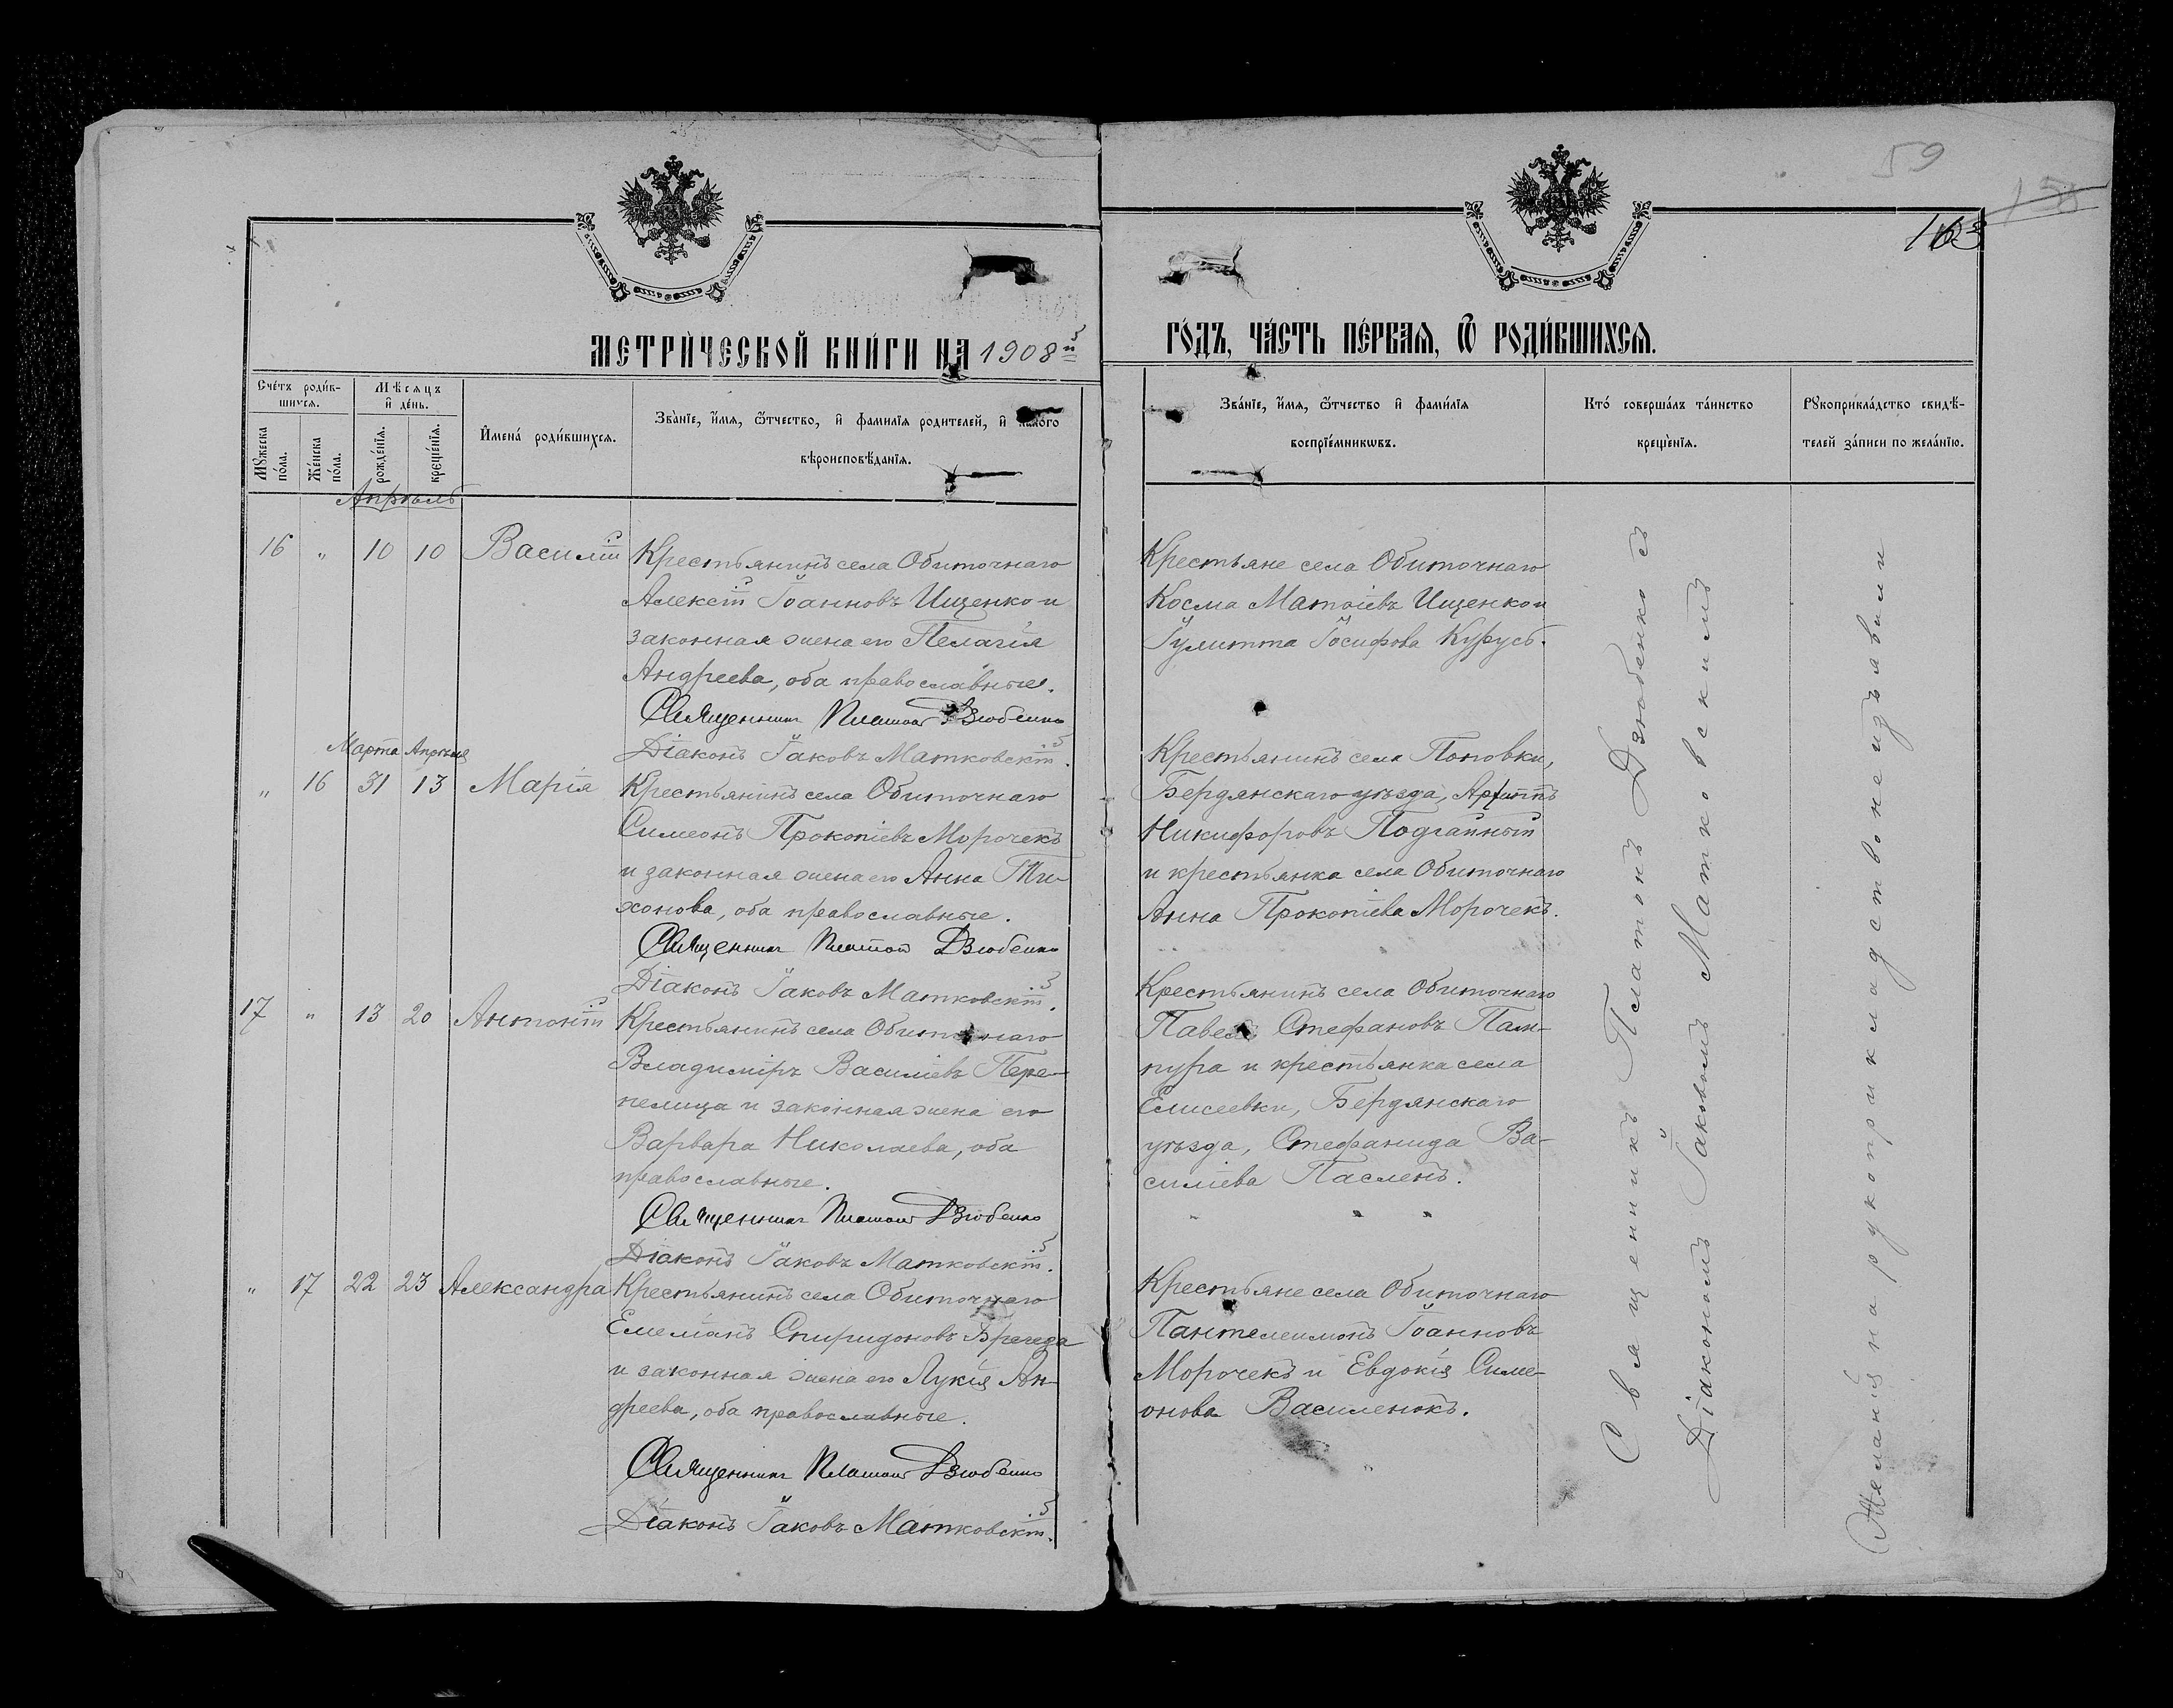 59
153
163
МЕТРИ́ЧЕСКОЙ КНИ́ГИ НА 1908й
ГО́ДЪ, ЧА́СТЬ ПЕ́РВАЯ, Ѿ РОДИ́ВШИХСЯ.
Сче́тъ роди́в-
шихся.
Мꙋ́жеска по́ла.
Же́нска по́ла.
Мѣ́сяцъ
и҆ де́нь.
рожде́нїѧ.
креще́нїѧ.
И҆мена́ роди́вшихся.
Зва́нїе, и҆́мѧ, ѻ҆́тчество, и҆ фами́лїѧ роди́телей, и҆ како́го
вѣроисповѣ́данїѧ.
Зва́нїе, и҆́мѧ, ѻ҆́тчество и҆ фами́лїѧ
воспрїе́мникѡвъ.
Кто́ соверша́лъ та́инство
креще́нїѧ.
Рꙋкоприкла́дство свидѣ́-
телей за́писи по жела́нїю.
Апрѣль
16 " 10 10 Василій
Крестьянинъ села Обиточнаго
Алексій Іоанновъ Ищенко и
законная жена его Пелагія
Андреева, оба православные.
Священникъ Платонъ Дзюбенко
Діаконъ Іаковъ Матковскій.
Крестьяне села Обиточнаго
Косма Матѳіевъ Ищенко и
Іулитта Іосифова Курусь.
Марта Апрѣля
" 16 31 13 Марія
Крестьянинъ села Обиточнаго
Симеонъ Прокопіевъ Морочекъ
и законная жена его Анна Ти-
хонова, оба православные.
Священникъ Платонъ Дзюбенко
Діаконъ Іаковъ Матковскій.
Крестьянинъ села Поповки,
Бердянскаго уѣзда, Архиппъ
Никифоровъ Подгайный
и крестьянка села Обиточнаго
Анна Прокопіева Морочекъ.
17 " 13 20 Антоній
Крестьянинъ села Обиточнаго
Владиміръ Василіевъ Пере-
пелица и законная жена его
Варвара Николаева, оба
православные.
Священникъ Платонъ Дзюбенко
Діаконъ Іаковъ Матковскій.
Крестьянинъ села Обиточнаго
Павелъ Стефановъ Пам-
пура и крестьянка села
Елисеевки, Бердянскаго
уѣзда, Стефанида Ва-
силіева Пасленъ.
" 17 22 23 Александра
Крестьянинъ села Обиточнаго
Емеліанъ Спиридоновъ
и законная жена его Лукія Ан-
дреева, оба православные.
Священникъ Платонъ Дзюбенко
Діаконъ Іаковъ Матковскій.
Крестьяне села Обиточнаго
Пантелеимонъ Іоанновъ
Морочекъ и Евдокія Симе-
онова Василенокъ.
Священникъ Платонъ Дзюбенко съ
Діакономъ Іаковомъ Матковскимъ
Желанія на рукоприкладство не изъявили